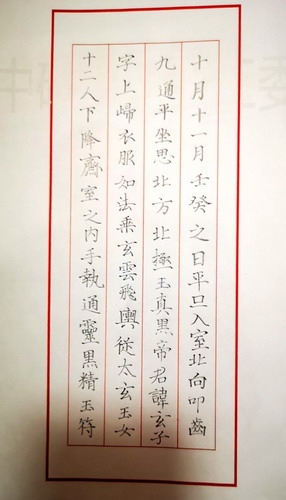 十月十一月壬癸之日平旦入室北向叩齒
九通平坐思北方北極玉真黑帝君諱玄子
字上歸衣服如法乘玄雲飛輿從太玄玉女
十二人下降齋室之內手執通靈黑精玉符